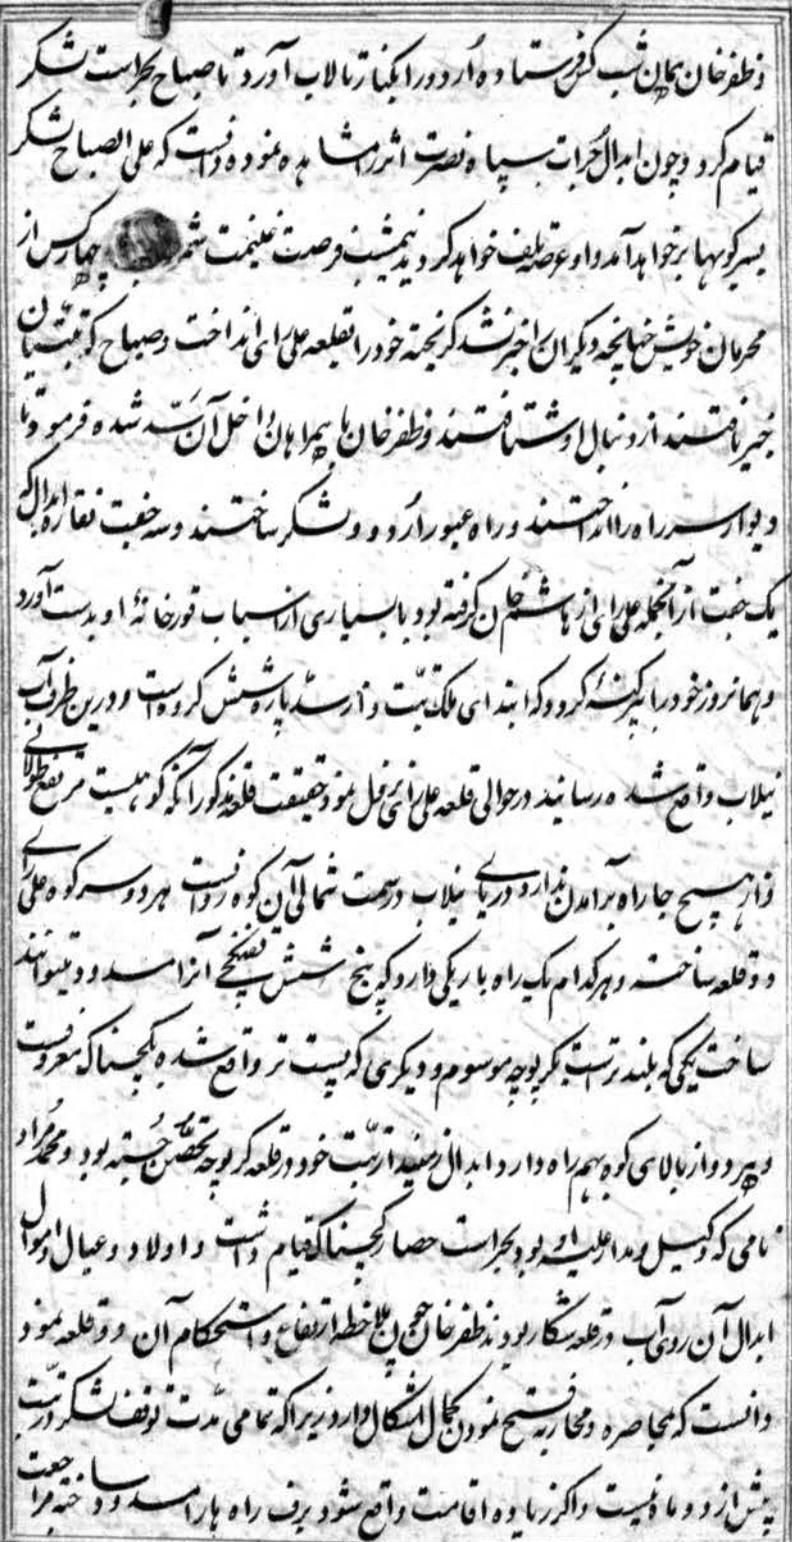 و ظفرخان همان شب کس فرستاده اُردو را بکنار تالاب آورد تا صباح بحراست لشکر
قیام کرد و چون ابدال جرات سپاه نصرت اثر را مشاهده نموده دانست که علی الصباح لشکر
بسر کوهها برخواهد آمد و او عرصه تلف خواهد کردید نیمشب فرصت غنیمت شمرده با چهار کس از
محرمان خویش چنانچه دیکران را خبر نشد کریخته خود را بقلعه علی رای انداخت و صباح که تبتیان
خبر یافتند از دنبال او شتافتند و ظفرخان با همراهان داخل آن سد شده فرمود تا
دیوار سر راه را انداختند و راه عبور اُردو و لشکر ساختند و سه جفت نقاره ابدال که
یک جفت از آنجمله علی رای از هاشم خان کرفته بود با بسیاری از اسباب قورخانه او بدست آورد
و همانروز خود را به پرکنه کردو که ابتدای ملک تبت و از سد پاره شش کروه است و درین طرف آب
نیلاب واقع شده رسانید در حوالی قلعه علی رای نزول نمود حقیقت قلعه مذکور آنکه کوهیست مرتفع طولانی
و از هیچ جا راه برآمدن ندارد و دریای نیلاب در سمت شمالی آن کوه روانست بهر دو سر کوه علی رای
دو قلعه ساخته و هر کدام یک راه باریکی دارد که پنج شش تفنکچی آنرا مسدود میتوانند
ساخت یکی که بلندتر است بکرپوچه موسوم و دیکری که پست تر واقع شده بکهچناکه معروفست
و هر دو از بالای کوه بهم راه دارد ابدال رسیدن از تبت خود در قلعه کرپوچه تحصن جسته بود و محمد مراد
نامی که وکیل و مدار علیه او بود بحراست حصار کهچناکه قیام داشت و اولاد و عیال و اموال
ابدال آن روی آب در قلعه شکار بودند ظفرخان چون بملاحظه ارتفاع و استحکام آن دو قلعه نمود
دانست که بمحاصره و محاربه فتح نمودن کمال اشکال دارد زیرا که تمامی مدت توقف لشکر در تبت
پیش از دو ماه نیست و اکر زیاده اقامت واقع شود برف راه ها را مسدود ساخته مراجعت